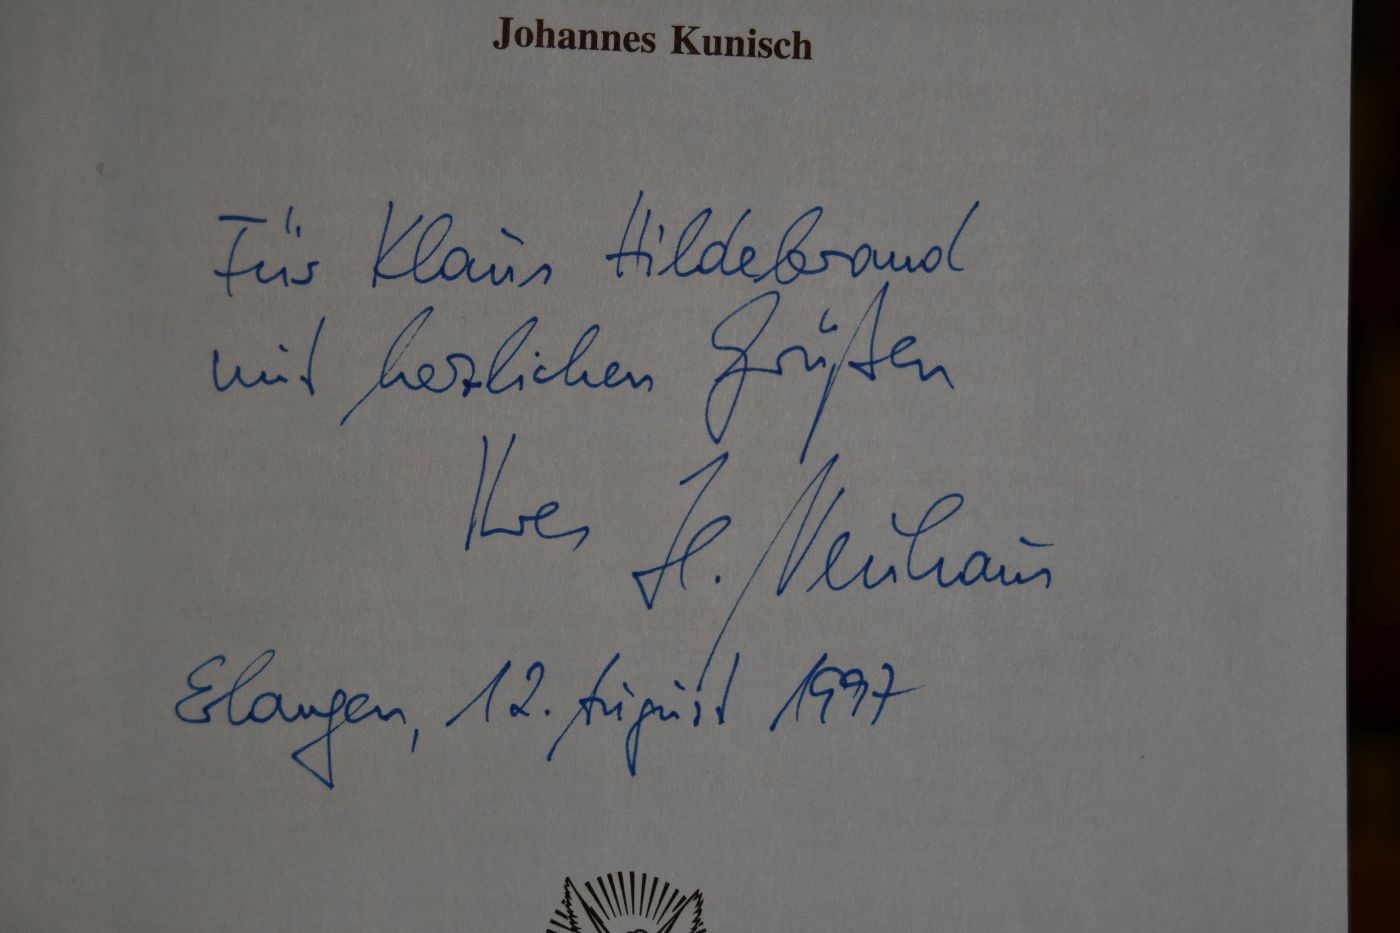 Johannes Kunisch
Für Klaus Hildebrand
mit herzlichen Grüßen
Ihres H. Neuhaus
Erlangen, 12. August 1997